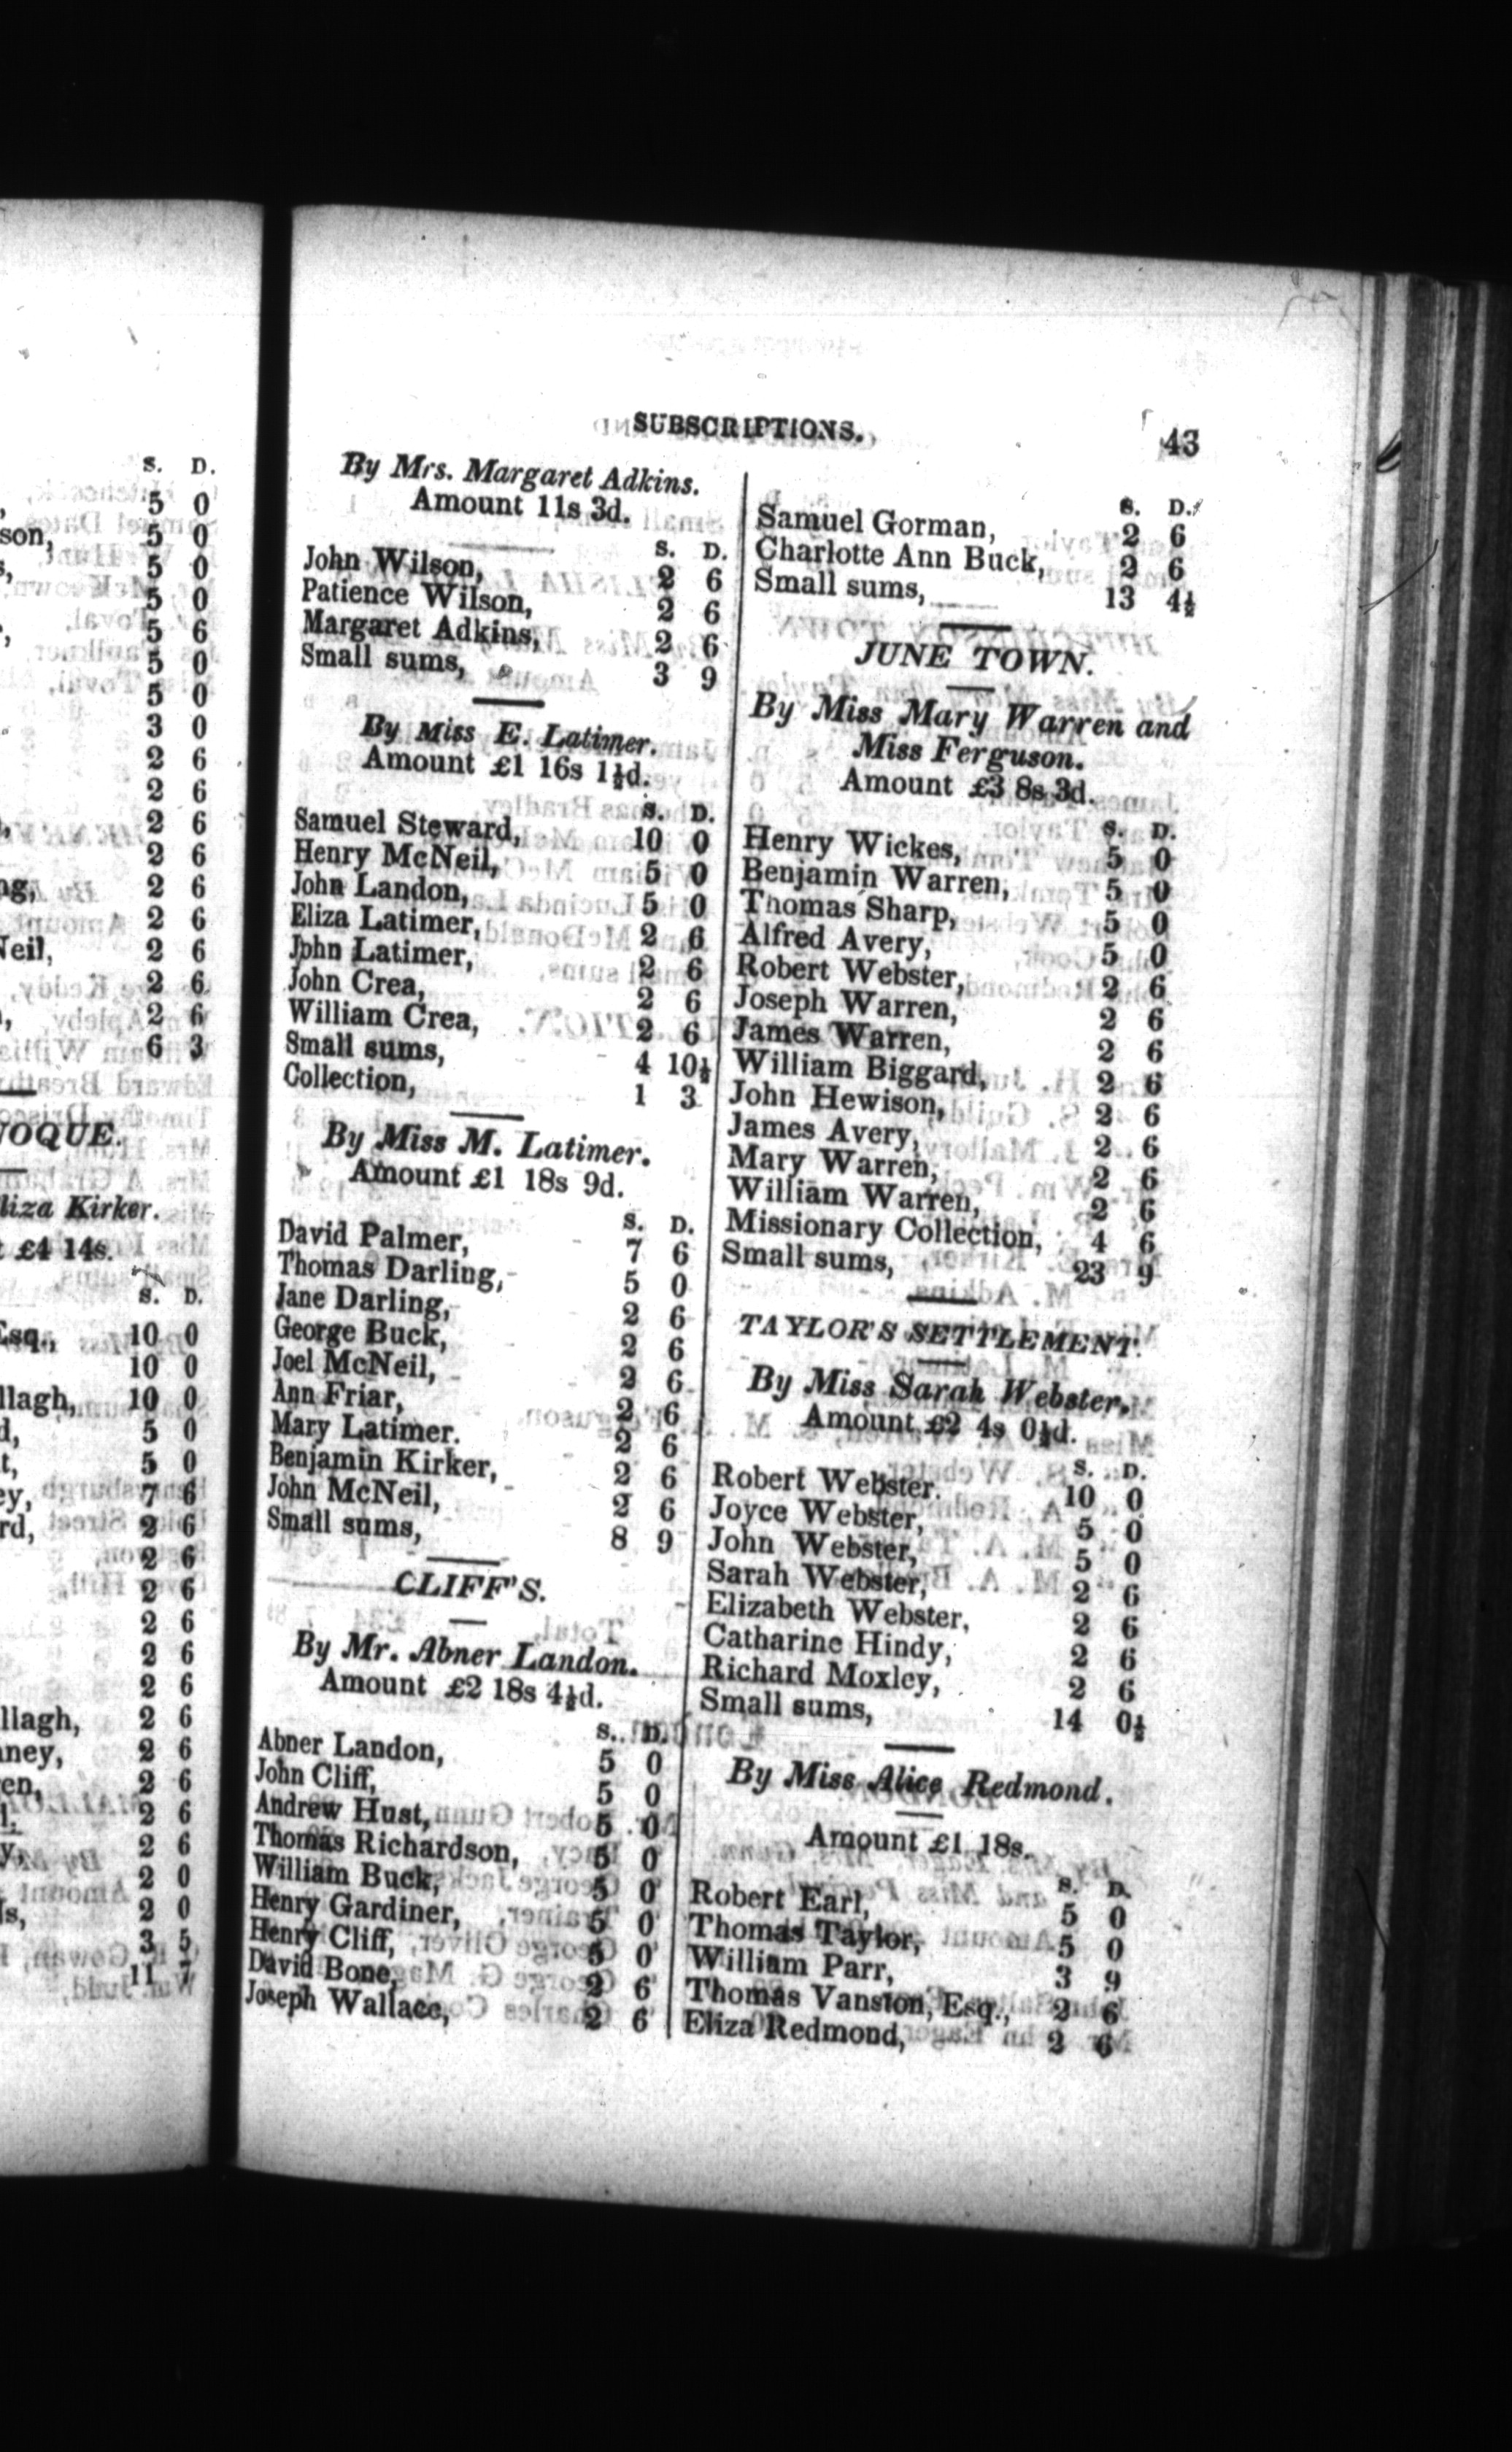 S. D.
5 0
son, 5 0
5 0
5 0
5 6
5 0
5 0
3 0
2 6
2 6
2 6
2 6
ng, 2 6
2 6
Neil, 2 6
2 6
2 6
6 3
VOQUE.
liza Kirker.
£4 14s.
S. D.
Esq., 10 0
10 0
llagh, 10 0
d, 5 0
t, 5 0
ey, 7 6
rd, 2 6
2 6
2 6
2 6
2 6
2 6
llagh, 2 6
ney, 2 6
en, 2 6
l. 2 6
y, 2 6
2 0
ls, 2 0
3 5
11 7
SUBSCRIPTIONS. 43
By Mrs. Margaret Adkins.
Amount 11s 3d.
S. D.
John Wilson, 2 6
Patience Wilson, 2 6
Margaret Adkins, 2 6
Small sums, 3 9
By Miss E. Latimer.
Amount £1 16s 1½d.
S. D.
Samuel Steward, 10 0
Henry McNeil, 5 0
John Landon, 5 0
Eliza Latimer, 2 6
John Latimer, 2 6
John Crea, 2 6
William Crea, 2 6
Small sums, 4 10½
Collection, 1 3
By Miss M. Latimer.
Amount £1 18s 9d.
S. D.
David Palmer, 7 6
Thomas Darling, 5 0
Jane Darling, 2 6
George Buck, 2 6
Joel McNeil, 2 6
Ann Friar, 2 6
Mary Latimer. 2 6
Benjamin Kirker, 2 6
John McNeil, 2 6
Small sums, 8 9
CLIFF'S.
By Mr. Abner Landon.
Amount £2 18s 4½d.
S. D.
Abner Landon, 5 0
John Cliff, 5 0
Andrew Hust, 5 0
Thomas Richardson, 5 0
William Buck, 5 0
Henry Gardiner, 5 0
Henry Cliff, 5 0
David Bone, 2 6
Joseph Wallace, 2 6
S. D.
Samuel Gorman, 2 6
Charlotte Ann Buck, 2 6
Small sums, 13 4½
JUNE TOWN.
By Miss Mary Warren and
Miss Ferguson.
Amount £3 8s 3d.
S. D.
Henry Wickes, 5 0
Benjamin Warren, 5 0
Thomas Sharp, 5 0
Alfred Avery, 5 0
Robert Webster, 2 6
Joseph Warren, 2 6
James Warren, 2 6
William Biggard, 2 6
John Hewison, 2 6
James Avery, 2 6
Mary Warren, 2 6
William Warren, 2 6
Missionary Collection, 4 6
Small sums, 23 9
TAYLOR'S SETTLEMENT.
By Miss Sarah Webster.
Amount £2 4s 0½d.
S. D.
Robert Webster. 10 0
Joyce Webster, 5 0
John Webster, 5 0
Sarah Webster, 2 6
Elizabeth Webster, 2 6
Catharine Hindy, 2 6
Richard Moxley, 2 6
Small sums, 14 0½
By Miss Alice Redmond.
Amount £1 18s.
S. D.
Robert Earl, 5 0
Thomas Taylor, 5 0
William Parr, 3 9
Thomas Vanston, Esq., 2 6
Eliza Redmond, 2 6